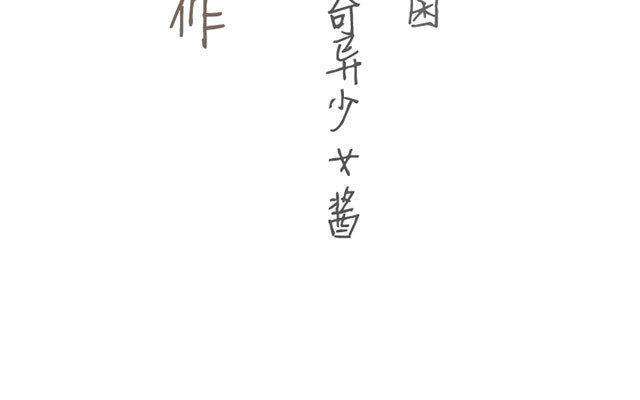 困
奇异少女酱
作